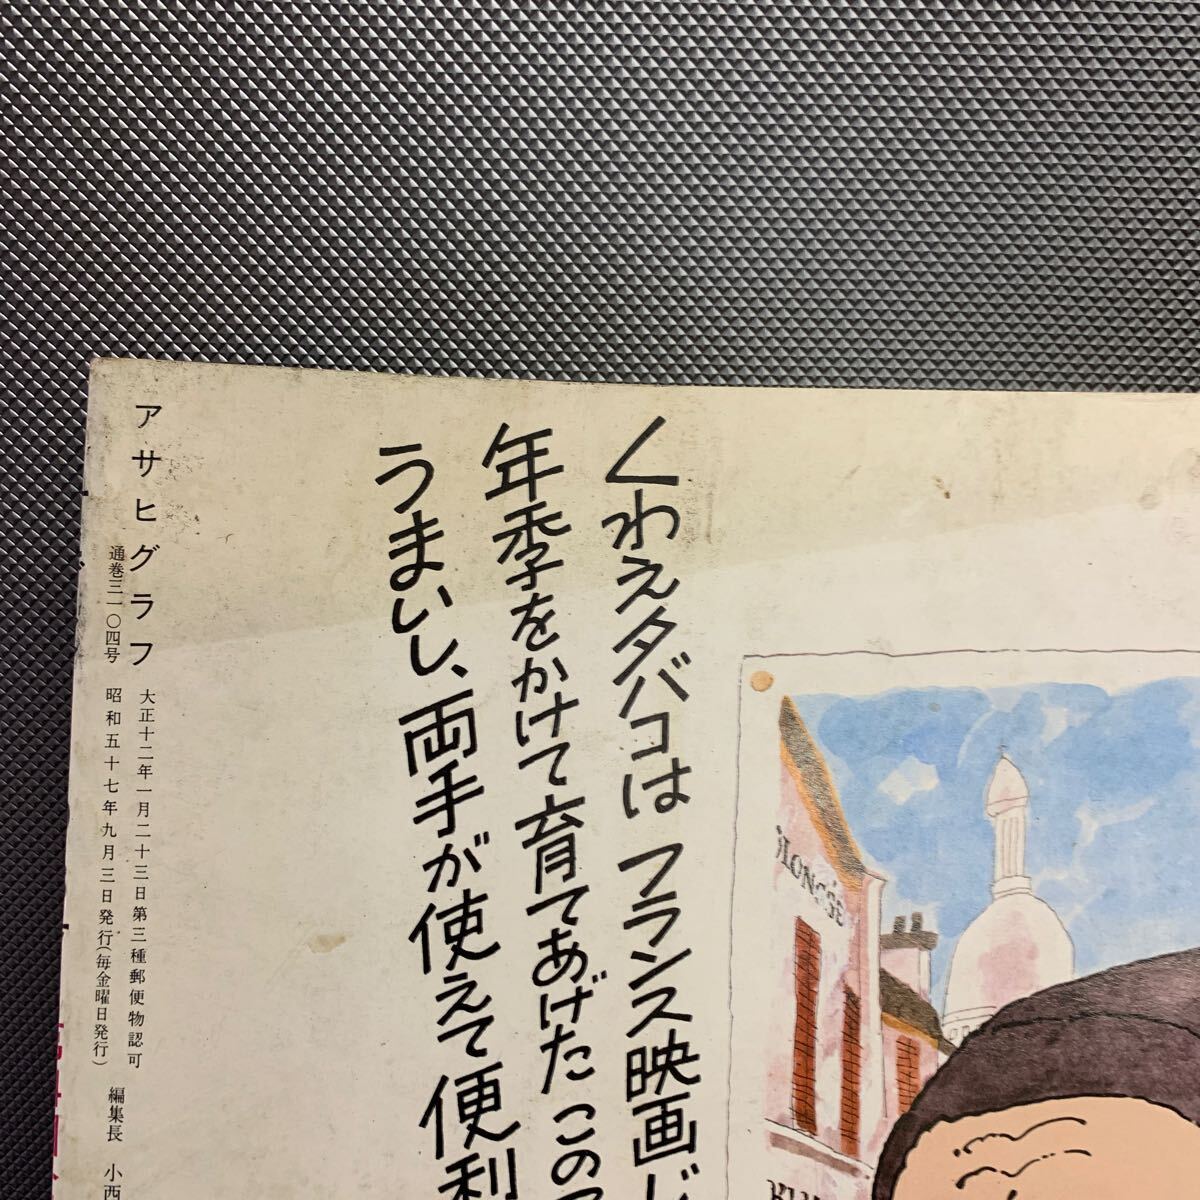 くわえタバコはフランス映画じ
年季をかけて育てあげたこの
うまいし、両手が使えて便利
アサヒグラフ
大正十二年一月二十三日第三種郵便物認可
通巻三一〇四号 昭和五十七年九月三日発行(毎金曜日発行) 編集長 小西